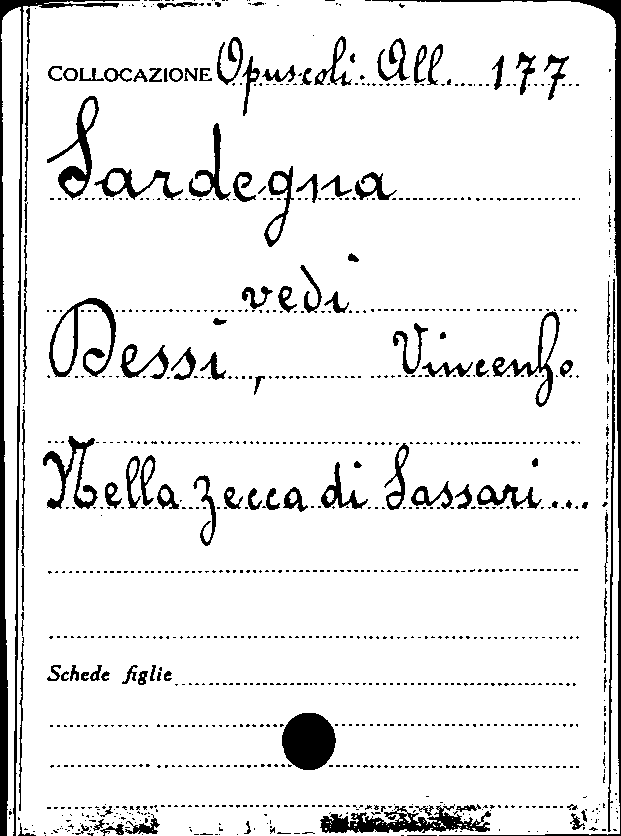 COLLOCAZIONE Opuscoli. All. 177
Sardegna
vedi
Dessi, Vincenzo
Nella zecca di Sassari...
Schede figlie